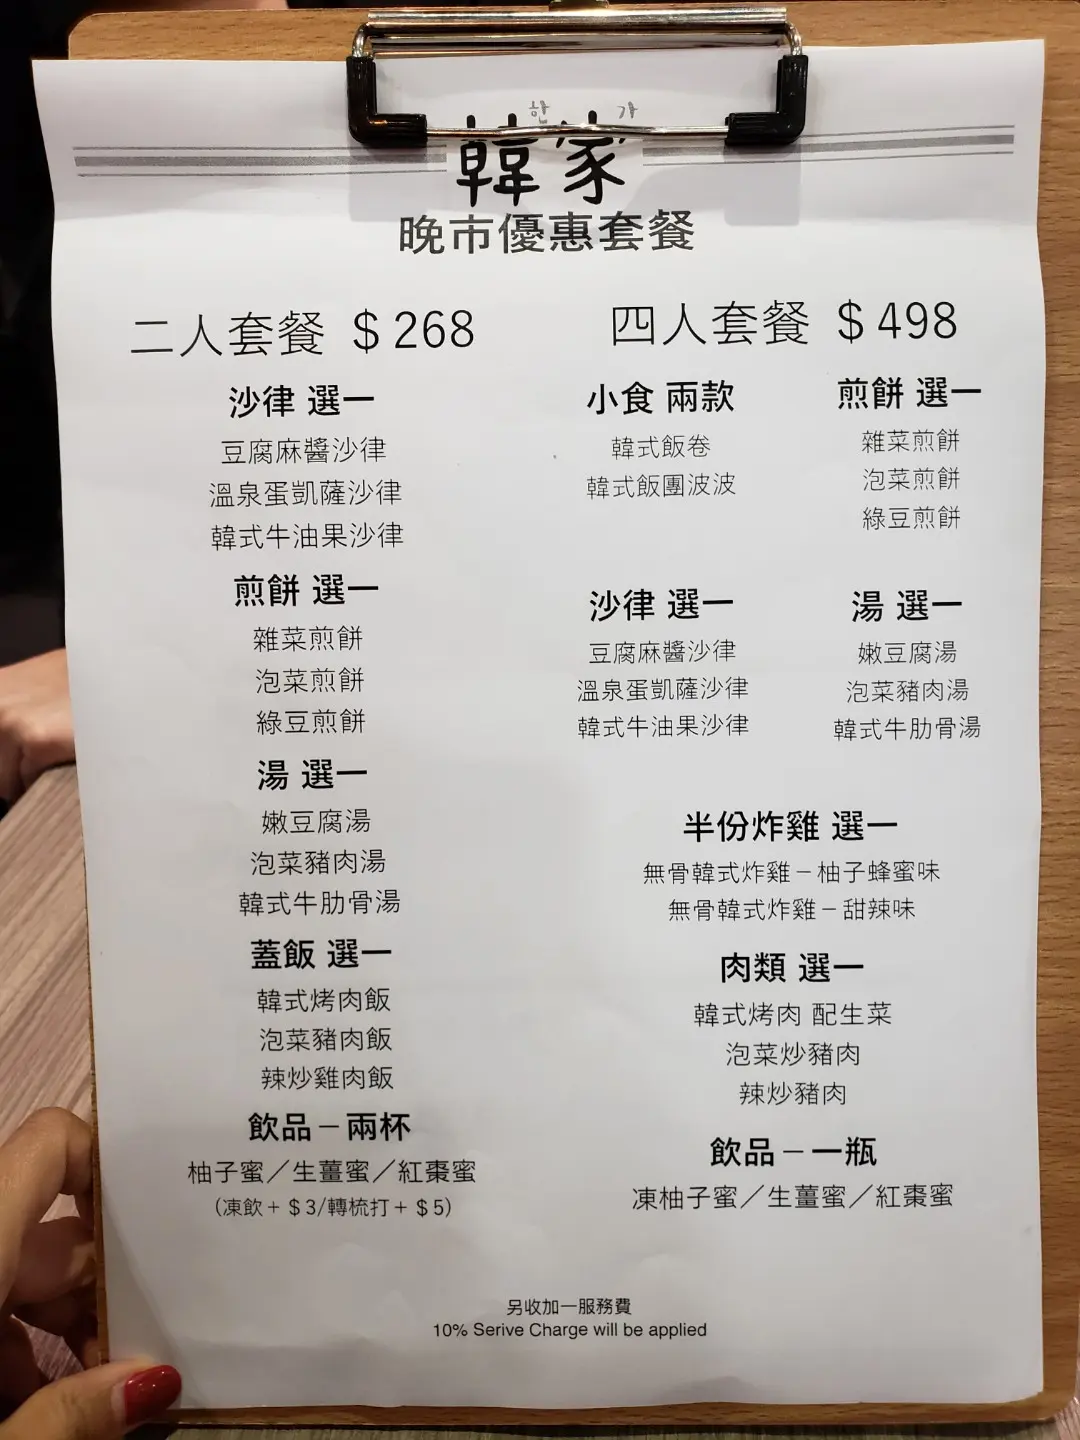 한 가
韓家
晚市優惠套餐
二人套餐 $268
沙律 選一
豆腐麻醬沙律
溫泉蛋凱薩沙律
韓式牛油果沙律
煎餅 選一
雜菜煎餅
泡菜煎餅
綠豆煎餅
湯 選一
嫩豆腐湯
泡菜豬肉湯
韓式牛肋骨湯
蓋飯 選一
韓式烤肉飯
泡菜豬肉飯
辣炒雞肉飯
飲品－兩杯
柚子蜜／生薑蜜／紅棗蜜
(凍飲+$3/轉梳打+$5)
四人套餐 $498
小食 兩款
韓式飯卷
韓式飯團波波
煎餅 選一
雜菜煎餅
泡菜煎餅
綠豆煎餅
沙律 選一
豆腐麻醬沙律
溫泉蛋凱薩沙律
韓式牛油果沙律
湯 選一
嫩豆腐湯
泡菜豬肉湯
韓式牛肋骨湯
半份炸雞 選一
無骨韓式炸雞－柚子蜂蜜味
無骨韓式炸雞－甜辣味
肉類 選一
韓式烤肉 配生菜
泡菜炒豬肉
辣炒豬肉
飲品－一瓶
凍柚子蜜／生薑蜜／紅棗蜜
另收加一服務費
10% Serive Charge will be applied